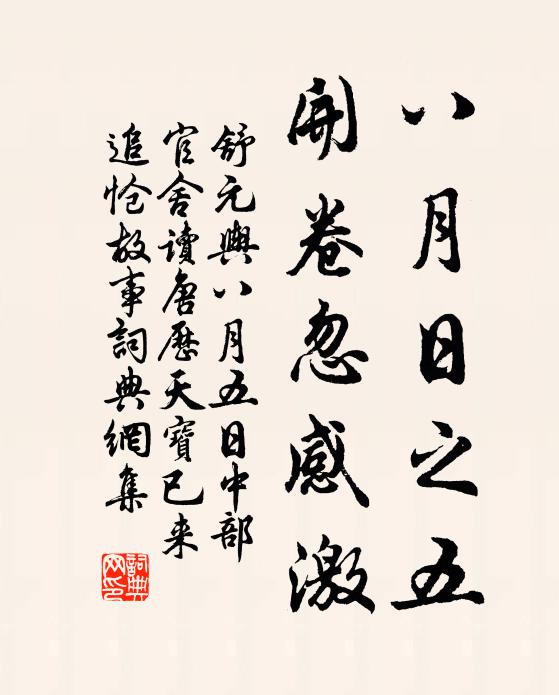 八月日之五
開卷忽感激
舒元輿八月五日中部
官舍讀唐歷天寶已来
追愴故事詞典網集
詞典网印